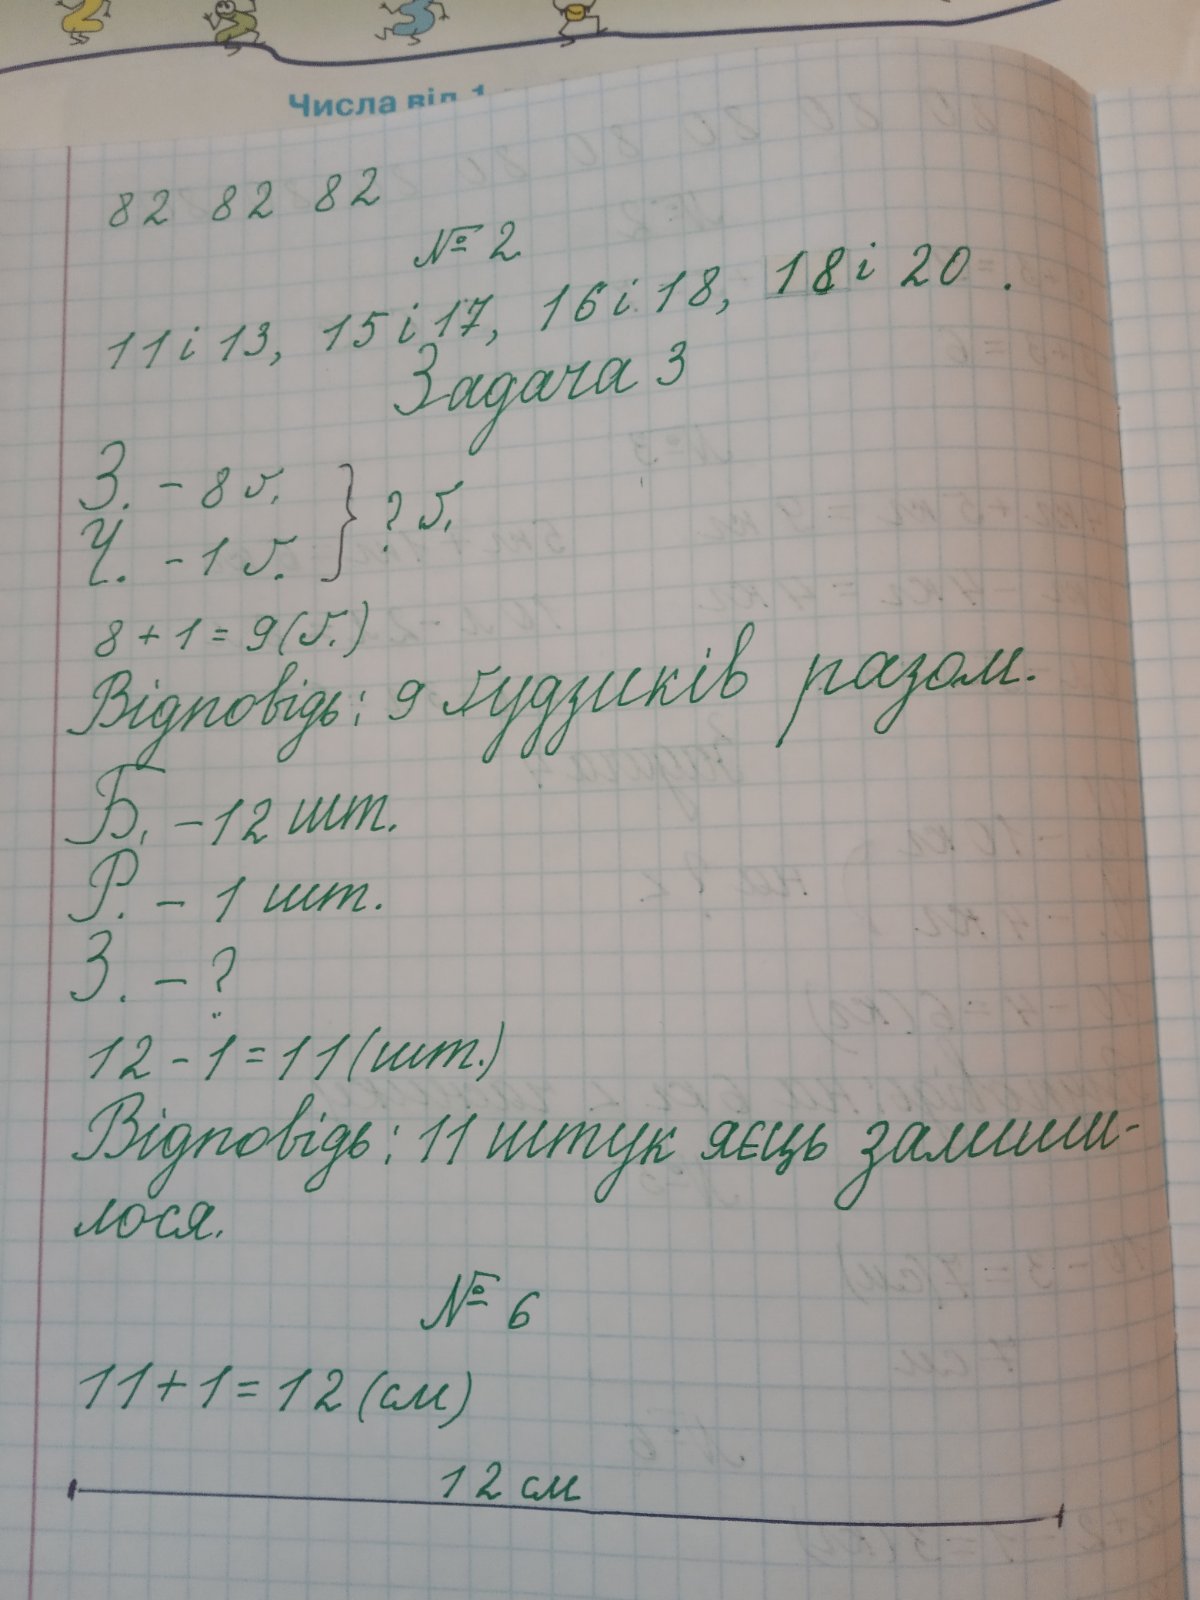 Числа від 1
82 82 82
№ 2
11 і 13, 15 і 17, 16 і 18, 18 і 20.
Задача 3
З. - 8 б.
Ч. - 1 б.
? б.
8 + 1 = 9 (б.)
Відповідь: 9 ґудзиків разом.
Б. - 12 шт.
Р. - 1 шт.
З. - ?
12 - 1 = 11 (шт.)
Відповідь: 11 штук яєць залиши-
лося.
№ 6
11 + 1 = 12 (см)
12 см